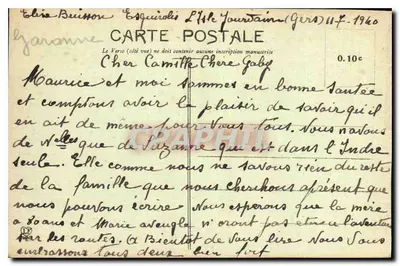 Elise Buisson Esquirolis L'Isle Jourdain (Gers) 11-7-1940
Garonne
CARTE POSTALE
Le Verso (côté vue) ne doit contenir aucune inscription manuscrite
0.10c
Cher Camille Chere Gaby
Maurice et moi sommes en bonne santée
et comptons avoir la plaisir de savoir qu'il
en ait de même pour vous tous. Nous n'avons
de Nelles que de Suzanne qui est dans l'Indre
seule. Elle comme nous ne savons rien du reste
de la famille que nous cherchons apresent que
nous pouvons écrire. Nous esperons que la mère
a 80 ans et Marie aveugle n'oront pas
sur les routes. A Bientot de vous lire Nous Vous
embrassons tous deux bien fort